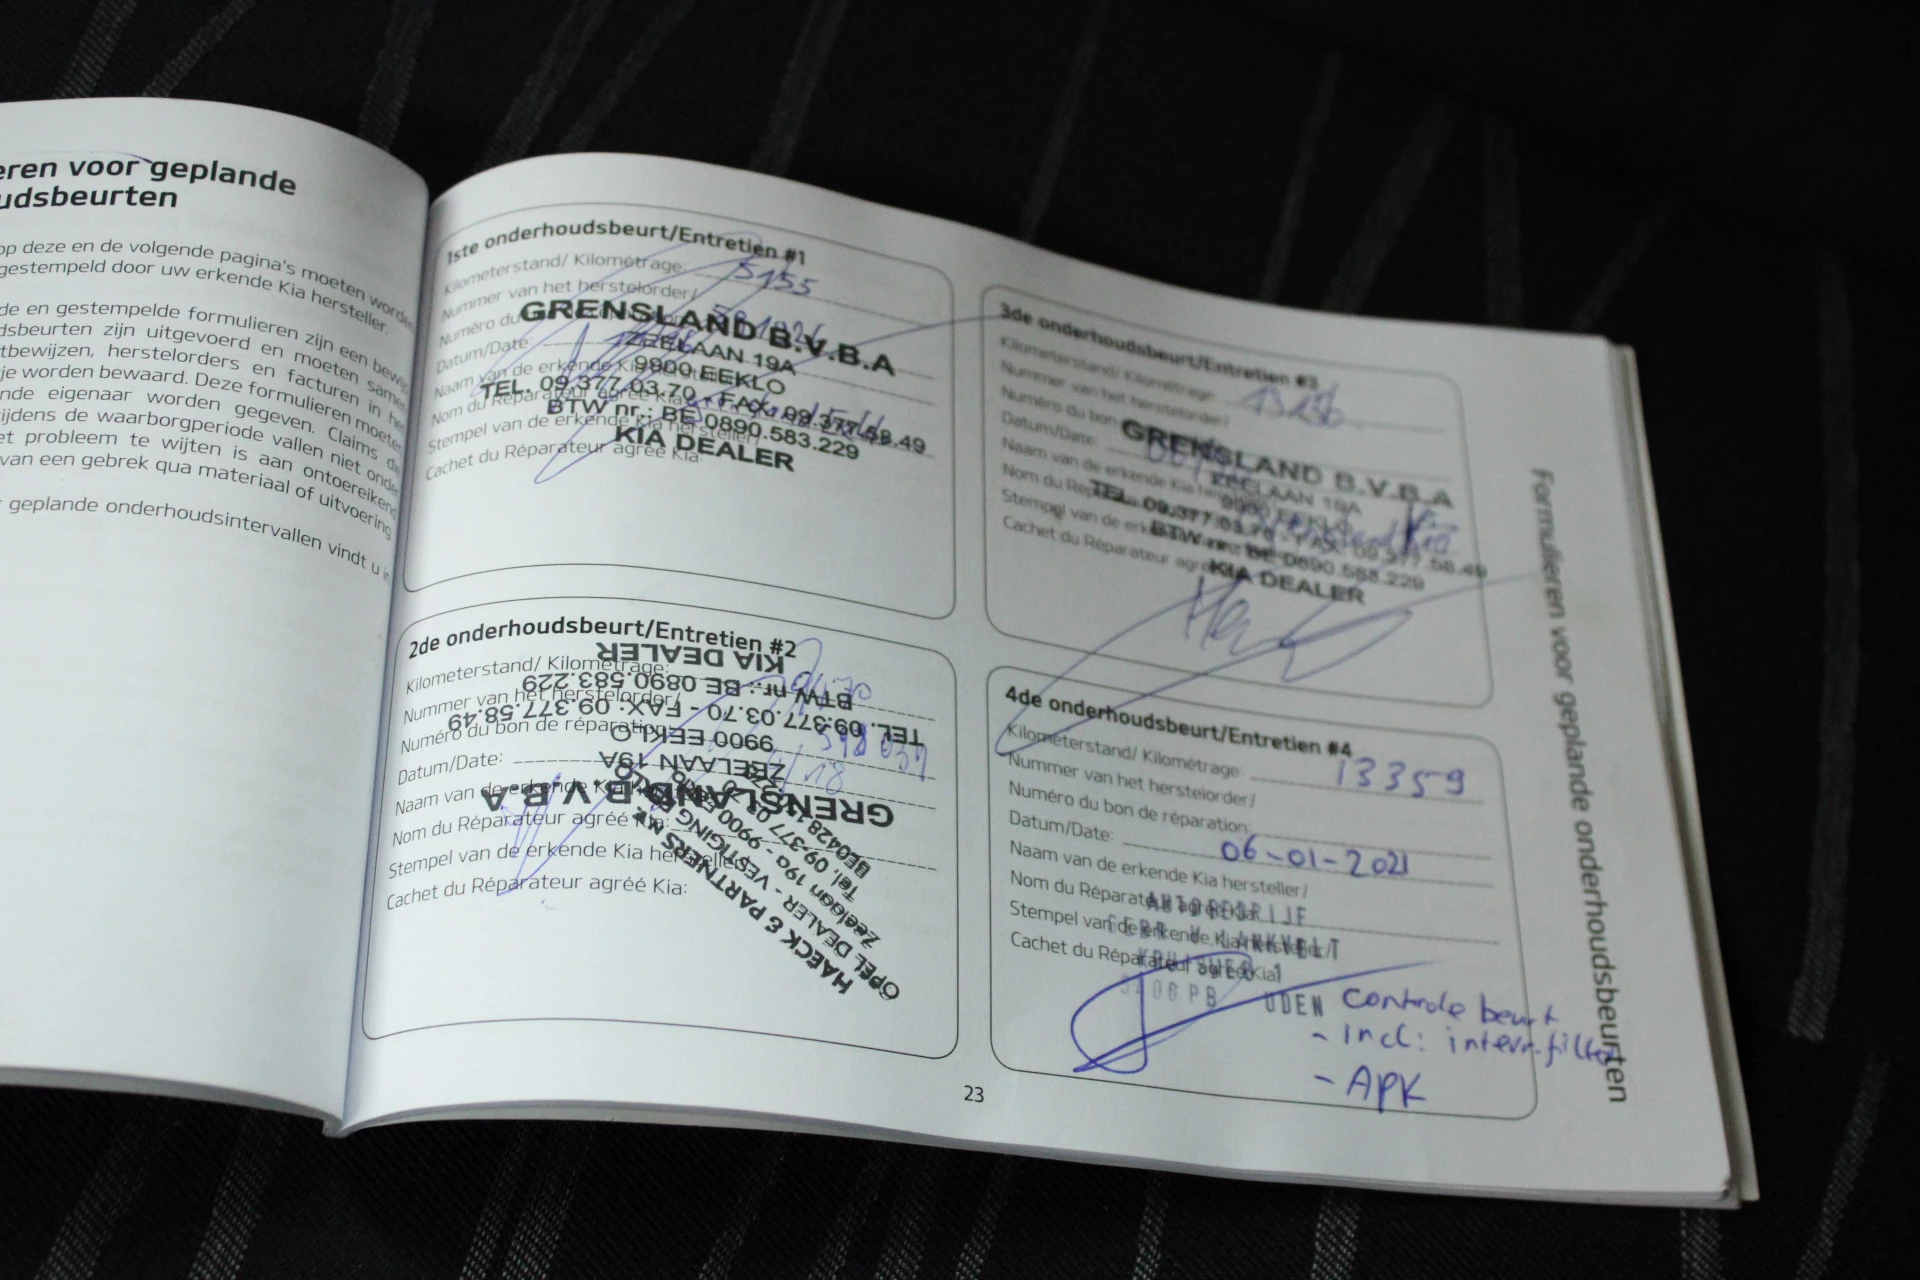 eren voor geplande
udsbeurten
op deze en de volgende pagina's moeten worden
gestempeld door uw erkende Kia hersteller.
de en gestempelde formulieren zijn een bewijs
dsbeurten zijn uitgevoerd en moeten samen
tbewijzen, herstelorders en facturen in het
je worden bewaard. Deze formulieren moeten
nde eigenaar worden gegeven. Claims die
tijdens de waarborgperiode vallen niet onder
et probleem te wijten is aan ontoereikend
van een gebrek qua materiaal of uitvoering.
geplande onderhoudsintervallen vindt u in
1ste onderhoudsbeurt/Entretien #1
Kilometerstand/ Kilométrage: 5155
Nummer van het herstelorder/
Numéro du
Datum/Date:
Naam van de erkende Kia
Nom du Réparateur agréé Kia:
Stempel van de erkende Kia hersteller/
Cachet du Réparateur agréé Kia:
GRENSLAND B.V.B.A
ZEELAAN 19A
9900 EEKLO
TEL. 09.377.03.70 - FAX: 09.377.58.49
BTW nr.: BE 0890.583.229
KIA DEALER
2de onderhoudsbeurt/Entretien #2
Kilometerstand/ Kilométrage:
Nummer van het herstelorder/
Numéro du bon de réparation:
Datum/Date:
Naam van de erkende Kia
Nom du Réparateur agréé Kia:
Stempel van de erkende Kia hersteller/
Cachet du Réparateur agréé Kia:
GRENSLAND B.V.B.A
ZEELAAN 19A
9900 EEKLO
TEL. 09.377.03.70 - FAX: 09.377.58.49
BTW nr.: BE 0890.583.229
KIA DEALER
HAECK & PARTNERS NV
OPEL DEALER - VESTIGING EEKLO
Zeelaan 19a - 9900
Tel. 09.377 03 70
BE0428
3de onderhoudsbeurt/Entretien #3
Kilometerstand/ Kilométrage:
Nummer van het herstelorder/
Numéro du bon
Datum/Date:
Naam van de erkende Kia
Nom du
Stempel van de
Cachet du Réparateur
GRENSLAND B.V.B.A
ZEELAAN 19A
9900 EEKLO
TEL. 09.377.03.70 - FAX: 09.377.58.49
BTW nr.: BE 0890.583.229
KIA DEALER
4de onderhoudsbeurt/Entretien #4
Kilometerstand/ Kilométrage: 13359
Nummer van het herstelorder/
Numéro du bon de réparation:
Datum/Date: 06-01-2021
Naam van de erkende Kia hersteller/
Nom du Réparateur agréé Kia:
Stempel van de erkende Kia hersteller/
Cachet du Réparateur agréé Kia:
UDEN
Controle beurt
- Incl: intern.filter
- APK
23
Formulieren voor geplande onderhoudsbeurten